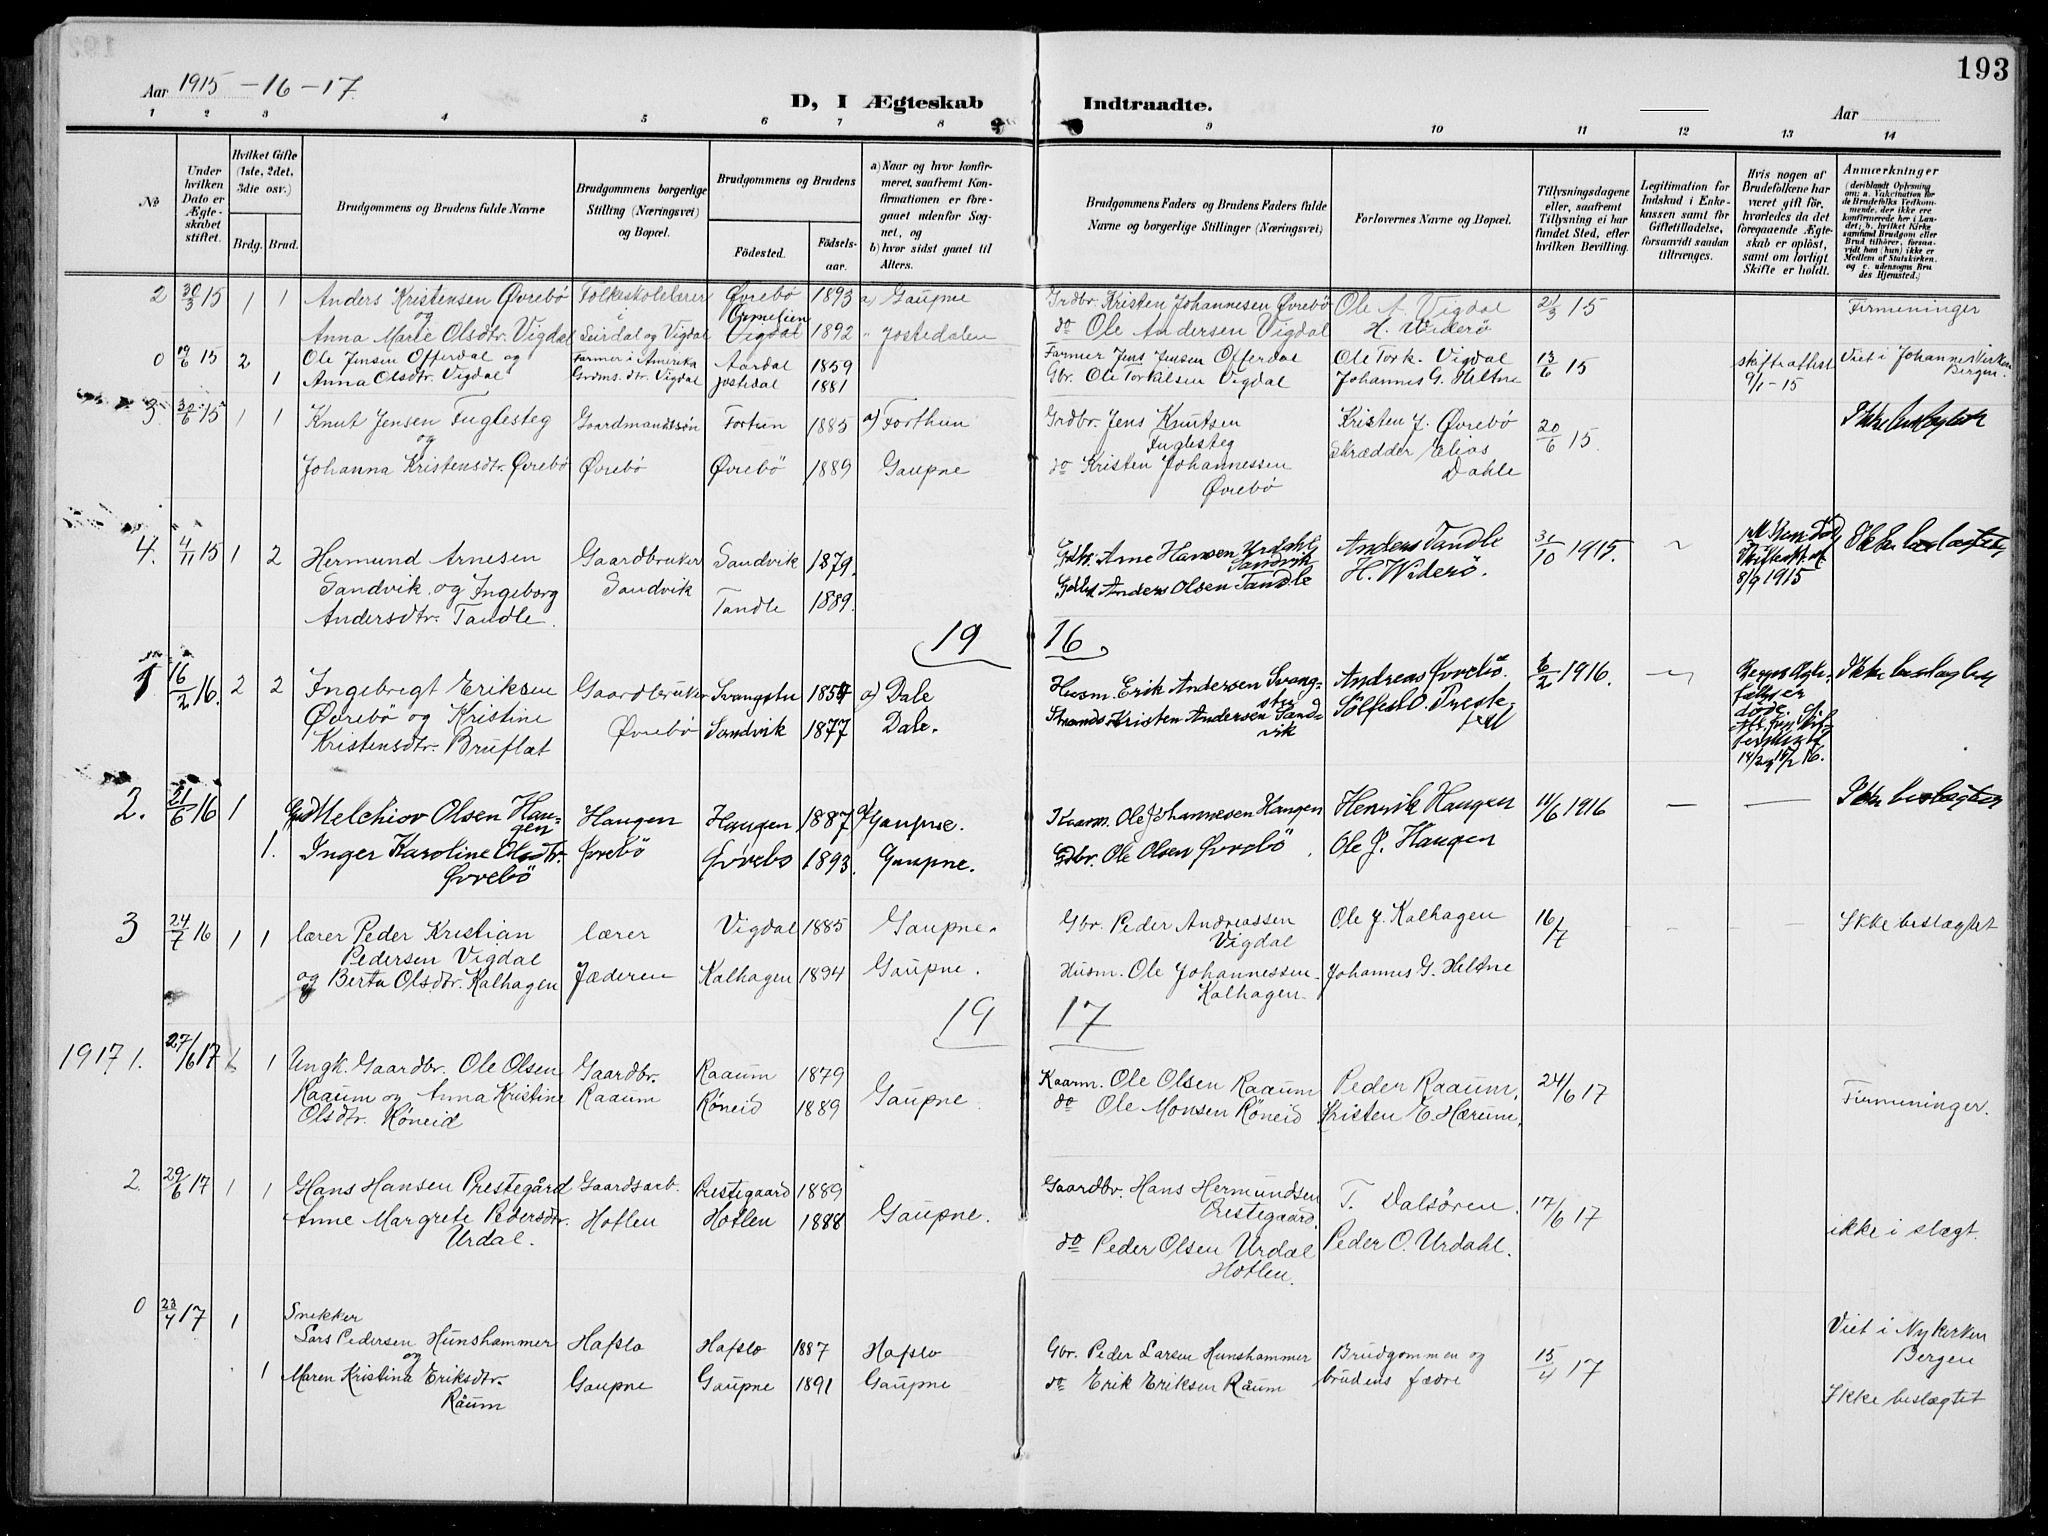 193
Aar 1915 - 16 - 17.
D, I Ægteskab Indtraadte.
Aar
1 2 3 4 5 6 7 8 9 10 11 12 13 14
No
Under hvilken Dato er Ægteskabet stiftet.
Hvilket Gifte (1ste, 2det, 3die osv.)
Brdg. Brud.
Brudgommens og Brudens fulde Navne
Brudgommens borgerlige Stilling (Næringsvei) og Bopæl.
Brudgommens og Brudens
Fødested. Fødselsaar.
a) Naar og hvor konfirmeret, saafremt Konfirmationen er foregaaet udenfor Sognet, og
b) hvor sidst gaaet til Alters.
Brudgommens Faders og Brudens Faders fulde Navne og borgerlige Stillinger (Næringsvei)
Forlovernes Navne og Bopæl.
Tillysningsdagene eller, saafremt Tillysning ei har fundet Sted, efter hvilken Bevilling.
Legitimation for Indskud i Enkekassen samt for Giftetilladelse, forsaavidt saadan tiltrænges.
Hvis nogen af Brudefolkene har været gift før, hvorledes da det foregaaende Ægteskab er opløst, samt om lovligt Skifte er holdt.
Anmærkninger
(deriblandt Oplysning om: a. Vaccination for de Brudefolks Vedkommende, der ikke ere konfirmerede her i Landet; b. hvilket Kirkesamfund Brudgom eller Brud tilhører, forsaavidt han (hun) ikke er Medlem af Statskirken, og c. udensogns Brudes Hjemsted.)
2 30/3 15 1 1 Anders Kristensen Øvrebø Folkeskolelærer Øvrebø 1893 a) Gaupne Grdbr. Kristen Johannesen Øvrebø Ole A. Vigdal 21/3 15 Firmeninger
og i Ormelien
Anna Marie Olsdtr. Vigdal Leirdal og Vigdal Vigdal 1892 " Jostedalen do Ole Andersen Vigdal H. Widerö
0 19/6 15 2 Ole Jensen Offerdal og Farmer i Amerika Aardal 1859 Farmer Jens Jensen Offerdal Ole Tork. Vigdal 13/6 15 skifteattest Viet i Johanneskirken
1 Anna Olsdtr. Vigdal Grdms. dtr. Vigdal Jostedal 1881 Gbr. Ole Torkilsen Vigdal Johannes G. Heltne 9/1-15 Bergen.
3. 30/6 15 1 1 Knut Jensen Fuglesteg Gaardmandssøn Fortun 1885 a) Forthun Grdbr. Jens Knutsen Kristen J. Øvrebø 20/6 15. Ikke beslægtet
og Fuglesteg Skrædder Elias
Johanna Kristensdtr. Øvrebø Øvrebø Øvrebö 1889 Gaupne do Kristen Johannessen Dahle
Øvrebø
4. 4/11 15 1 2 Hermund Arnesen Gaardbruker Sandvik 1879. Gdbr. Arne Hansen Urdahl Anders Tandle 31/10 1915.
Sandvik og Ingeborg Sandvik Tandle 1889. Sandvik H. Widerö. 8/9 1915
Andersdtr. Tandle. Anders Olsen Tandle
19 16
1 16/2 16. 2 2 Ingebrigt Eriksen Gaardbruker Svangstu 1854 a) Dale Husm. Erik Andersen Svang- Andreas Øvrebö. 6/2 1916. Ikke beslagtet
Øvrebö og Kristine Øvrebø Sandvik 1877 Dale. stu
Kristensdtr. Bruflat Kristen Andersen Sandvik
2. 21/6 16 1 Melchior Olsen Haugen Haugen Haugen 1887 a) Gaupne. Kaarm. Ole Johannesen Haugen Henrik Haugen 11/6 1916 — — Ikke beslagtet
1. Inger Karoline Olsdtr. Øvrebö Øvrebø 1893. Gaupne. Gdbr. Ole Olsen Øvrebö Ole J. Haugen
Øvrebö
3 24/7 16 1 1 lærer Peder Kristian lærer Vigdal 1885 Gaupne. Gbr. Peder Andreassen Ole J. Kalhagen 16/7 - - - Ikke beslægtet
Pedersen Vigdal Vigdal
og Berta Olsdtr. Kalhagen Jæderen Kalhagen 1894 Gaupne. Husm. Ole Johannessen Johannes G. Heltne
Kalhagen.
19 17
1917 1. 27/6 17 1 1 Ungk. Gaardbr. Ole Olsen Gaardbr. Raaum 1879 Kaarm. Ole Olsen Raaum Peder Raaum. 24/6 17
Raaum og Anna Kristine Raaum Røneid 1889 Gaupne. do Ole Monsen Röneid Kristen E. Hærum. Firmeninger.
Olsdtr. Røneid
2. 29/6 17 1 1 Hans Hansen Prestegård Gaardsarb. Prestegaard 1889 Gaardbr. Hans Hermundsen T. Valsören. 17/6 17
Anne Margrete Pedersdtr. Hotlen Hotlen 1888 Gaupne. Prestegaard.
Urdal. do Peder Olsen Urdal Peder O. Urdahl. ikke i slægt.
Hotlen.
0 23/4 17 1 Snekker Viet i Nykirken
Lars Pedersen Hunshammer Hafslo Hafslo 1887 Hafslo Gbr. Peder Larsen Hunshammer Brudgommen og 15/4 17 Bergen
og
1 Maren Kristina Eriksdtr. Gaupne Gaupne 1891 Gaupne do Erik Eriksen Råum brudens fædre Ikke beslægtet
Råum